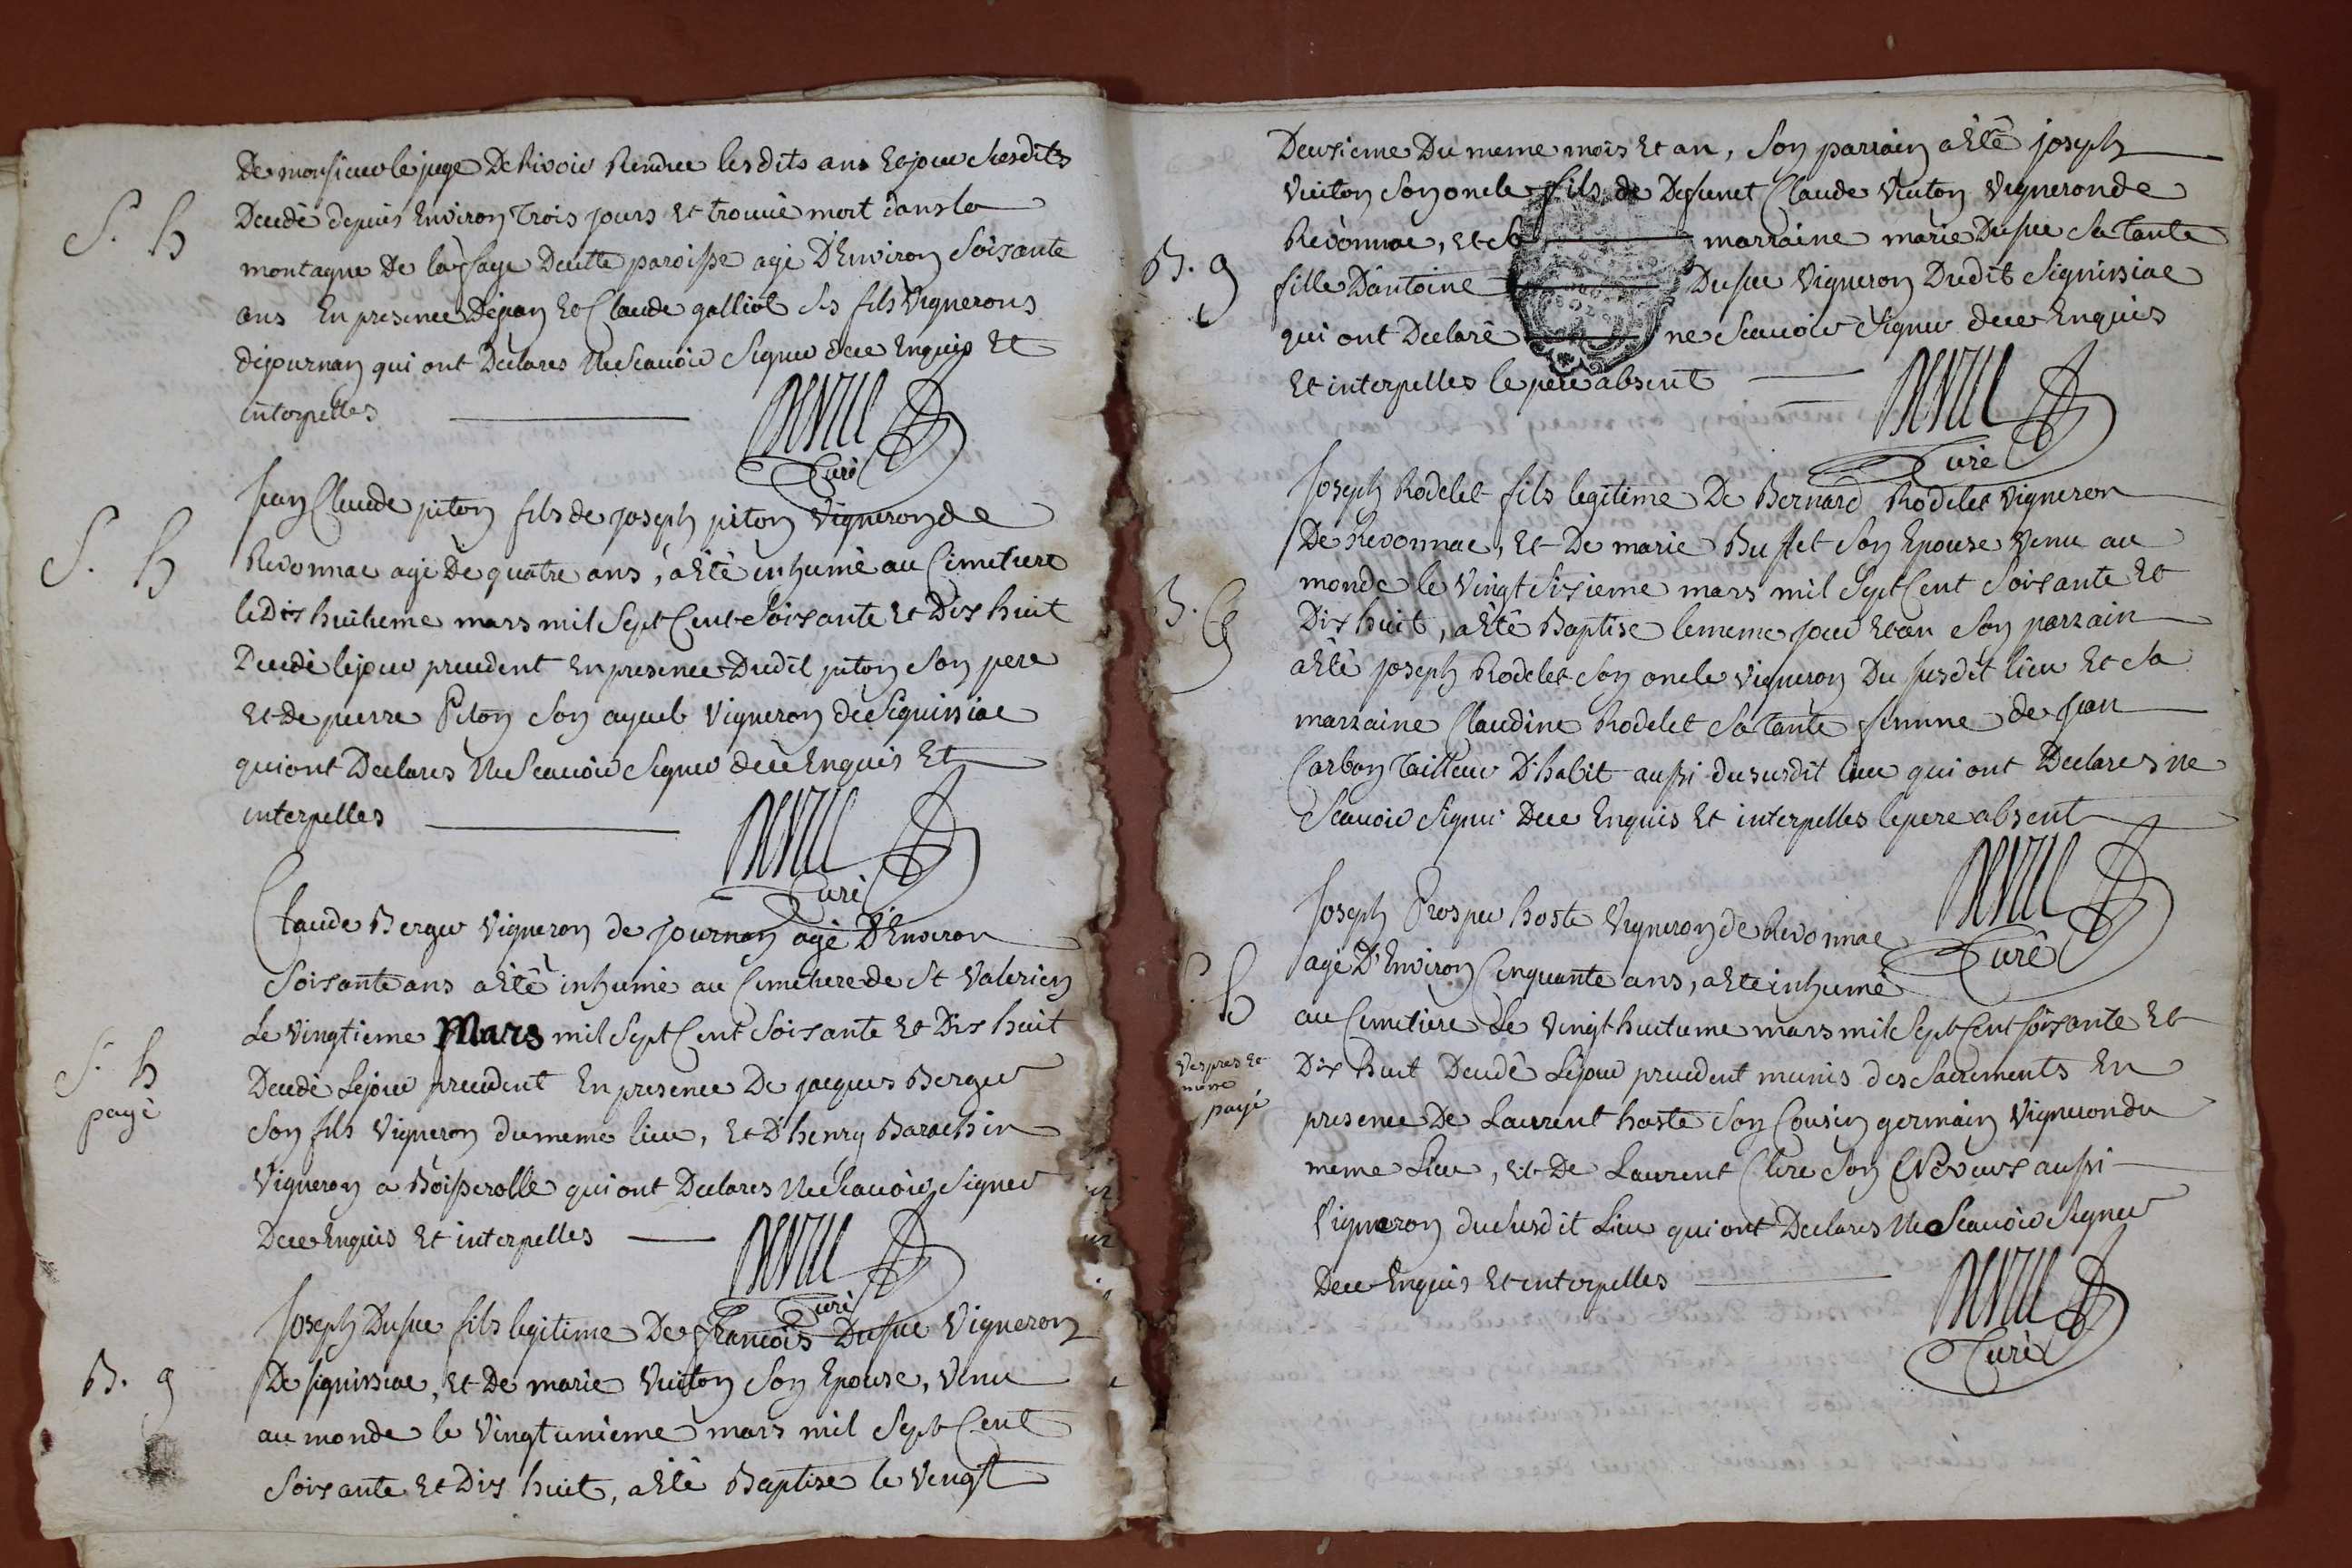 De monsieur le juge De Rivoir Rendue lesdits ans Et jour susdits
S. h
Decedé depuis Environ Trois jours Et trouvé mort dans la
montagne De la faye Decette paroisse agé D'Environ Soixante
ans En presence De jean Et Claude galliot ses fils Vignerons
de journan qui ont Declarés Ne Scavoir Signer dece Enquis Et
interpelles
Devill
Curé
S. h
Jean Claude piton fils de joseph piton Vigneron de
Revonnac agé De quatre ans, a Eté inhumé au Cimetiere
le Dix huitieme mars mil Sept Cent Soixante Et Dix huit
Decedé le jour precedent En presence Dudit piton Son pere
Et De pierre Piton Son ayeul Vigneron de Signissiac
qui ont Declarés Ne Scavoir Signer dece Enquis Et
interpelles
Curé
Claude Berger Vigneron de journan agé D'Environ
Soixante ans a Eté inhumé au Cimetiere de St Valerien
S. h
payé
Le vingtieme Mars mil Sept Cent Soixante Et Dix huit
Decedé Le jour precedent En presence De jacques Berger
Son fils Vigneron du meme lieu, Et D'henry Barachin
Vigneron a Boisserolle qui ont Declares Ne Scavoir Signer
Dece Enquis Et interpelles
Curé
Joseph Dufuc fils legitime De francois Dufuc Vigneron
B. g
De Signissiac, Et De marie Vuiton Son Epouse, Venu
au monde le Vingt unieme mars mil Sept Cent
Soixante Et Dix huit, a Eté Baptisé le Vingt
Deuxieme Du meme mois Et an, Son parrain a Eté joseph
Vuiton Son oncle fils de Defunct Claude Vuiton Vigneron de
Revonnac, Et Sa marraine marie Dufuc Sa Tante
B. g
fille D'antoine Dufuc Vigneron Dudit Signissiac
qui ont Declaré ne Scavoir Signer dece Enquis
Et interpelles le pere absent
Curé
Joseph Rodelet fils legitime De Bernard Rodelet Vigneron
De Revonnac, Et De marie Buffet Son Epouse Venu au
monde le Vingt Sixieme mars mil Sept Cent Soixante Et
B. G
Dix huit, a Eté Baptisé le meme jour Et an Son parrain
a Eté joseph Rodelet Son oncle Vigneron Du susdit lieu Et Sa
marraine Claudine Rodelet Sa Tante femme de jean
Carbon Tailleur D'habit aussi du susdit lieu qui ont Declares ne
Scavoir Signer Dece Enquis Et interpelles le pere absent
Curé
Joseph Prosper hoste Vigneron de Revonnac
agé D'Environ Cinquante ans, a Eté inhumé
S. h
au Cimetiere Le Vingt huitieme mars mil Sept Cent Soixante Et
Vespres Et
messe
payé
Dix huit Decedé Le jour precedent munis des Sacrements En
presence De Laurent hoste Son Cousin germain Vigneron du
meme Lieu, Et De Laurent Clere Son Neveux aussi
Vigneron du susdit Lieu qui ont Declares Ne Scavoir Signer
Dece Enquis Et interpelles
Curé